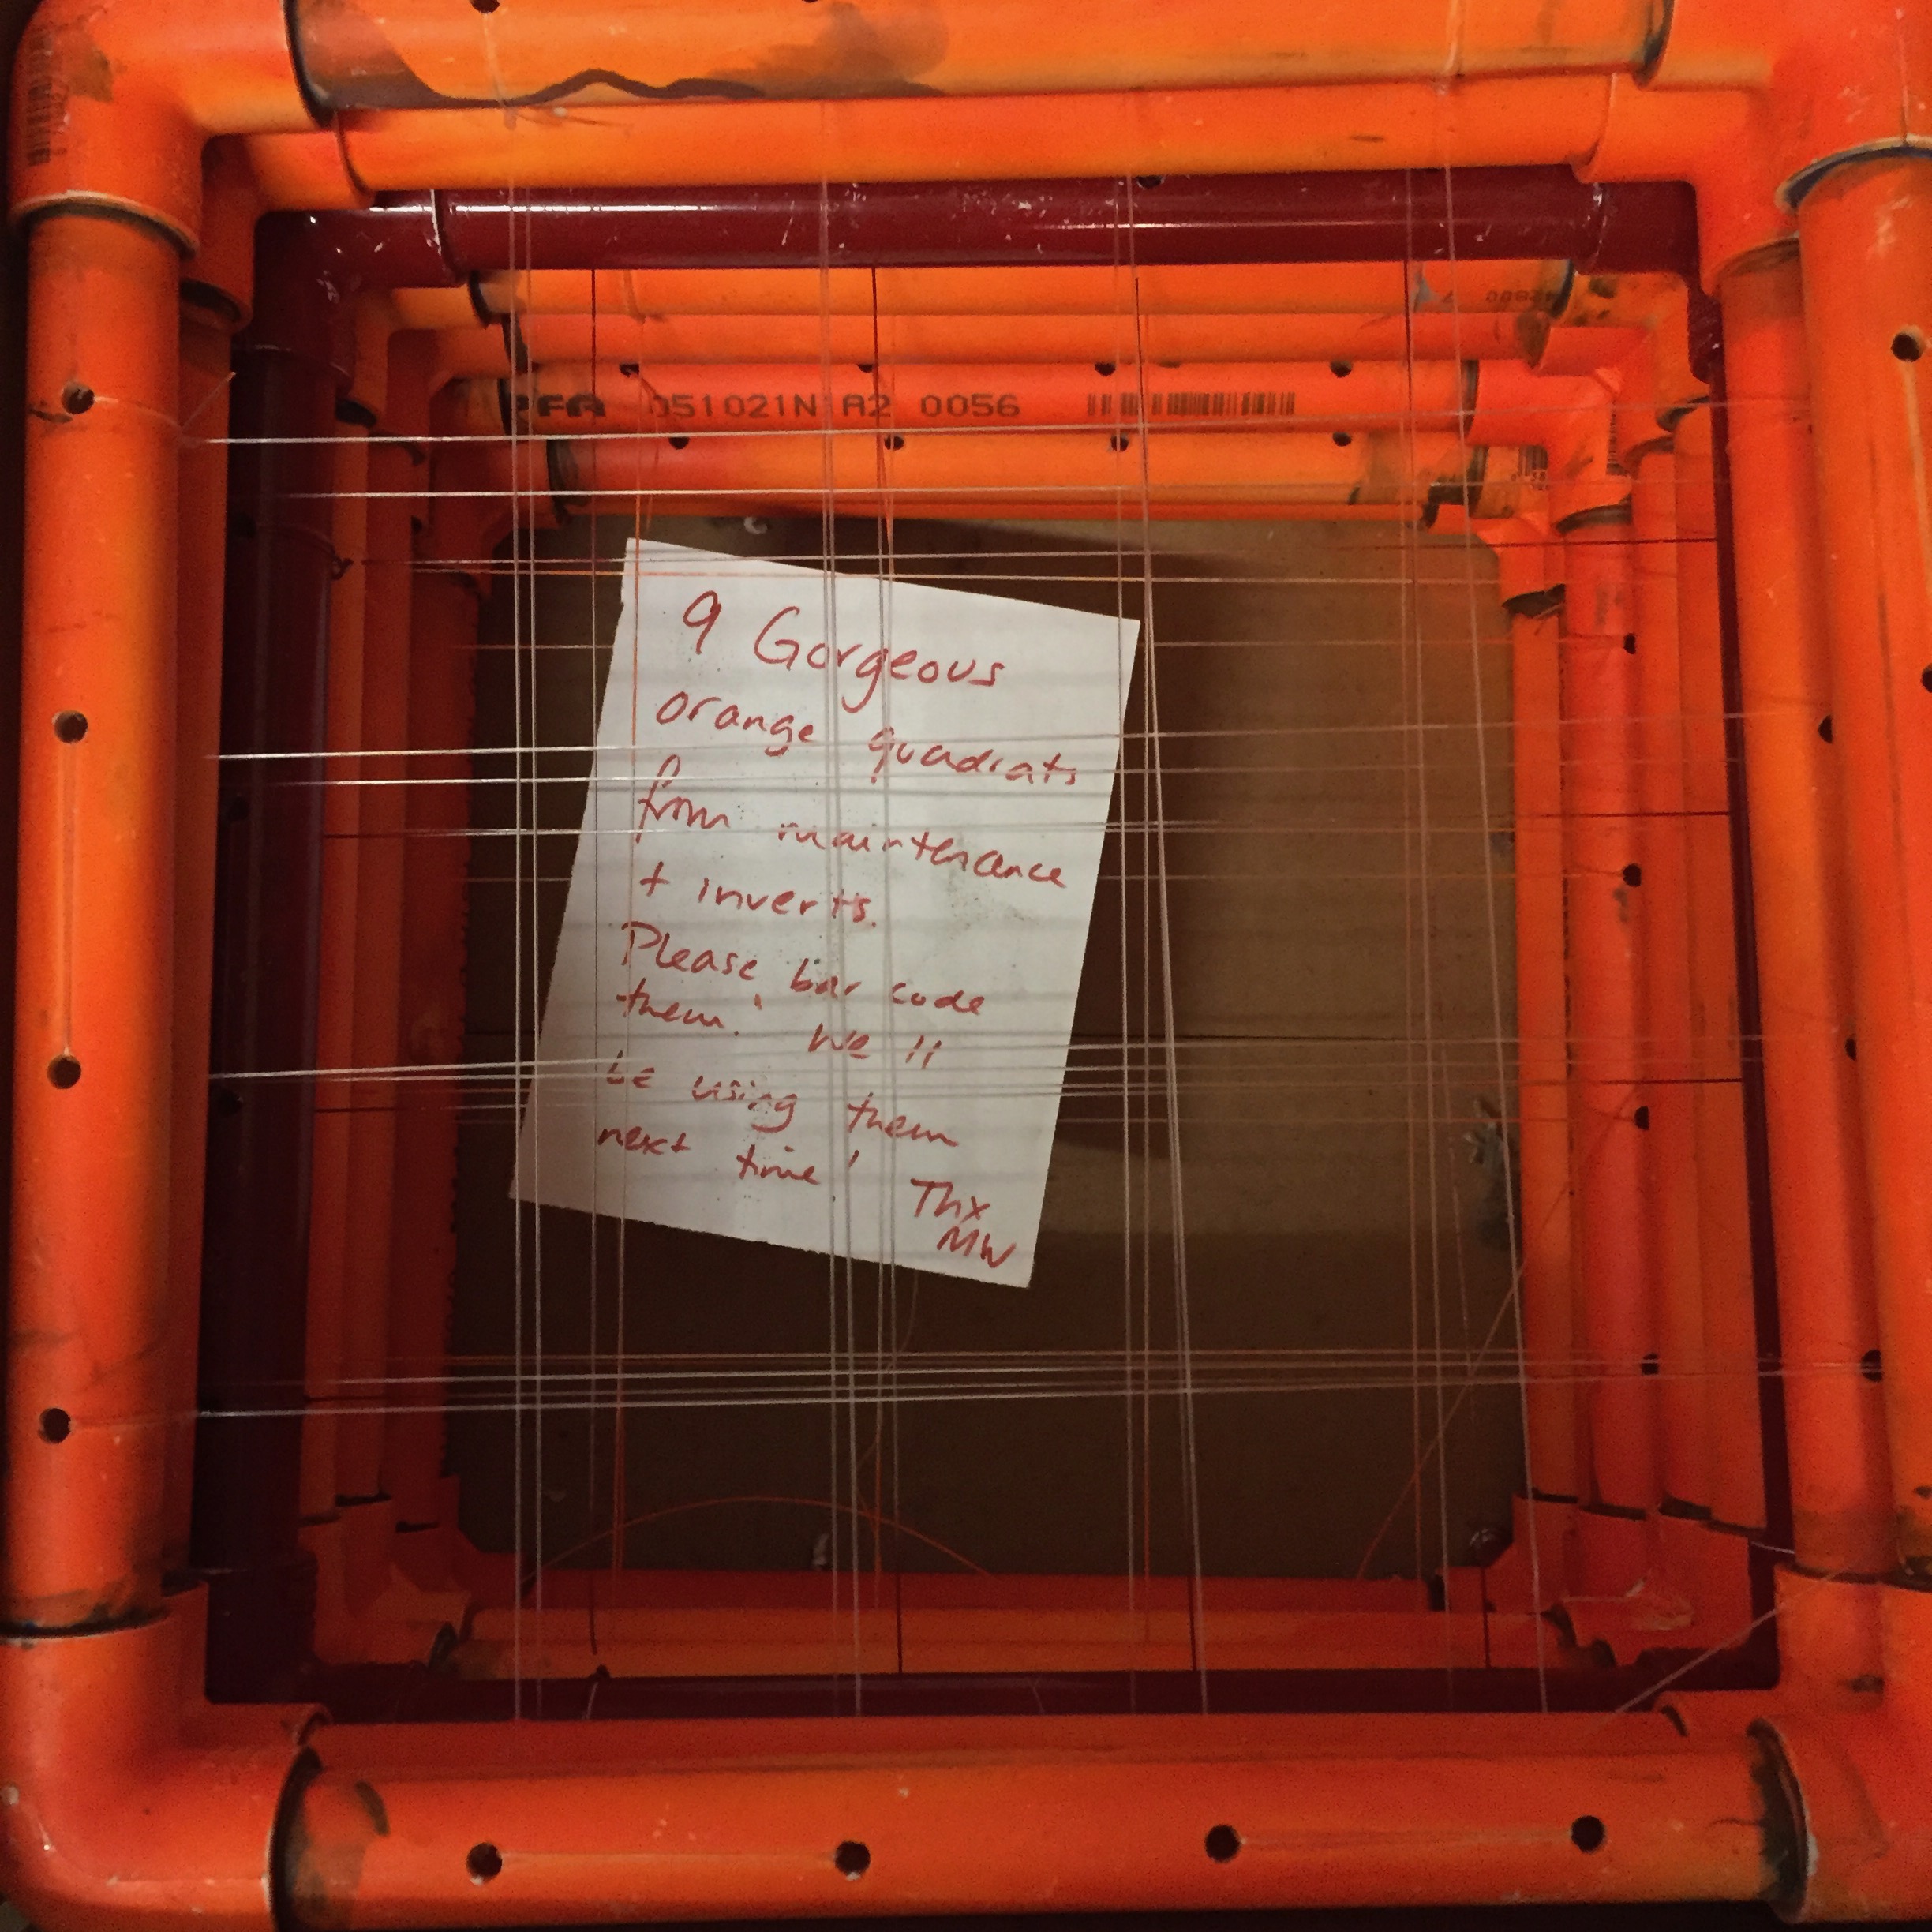 PFA 051021N A2 0056
9 Gorgeous
orange quadrats
from maintenance
+ inverts.
Please bar code
them! We'll
be using them
next time!
Thx
MW